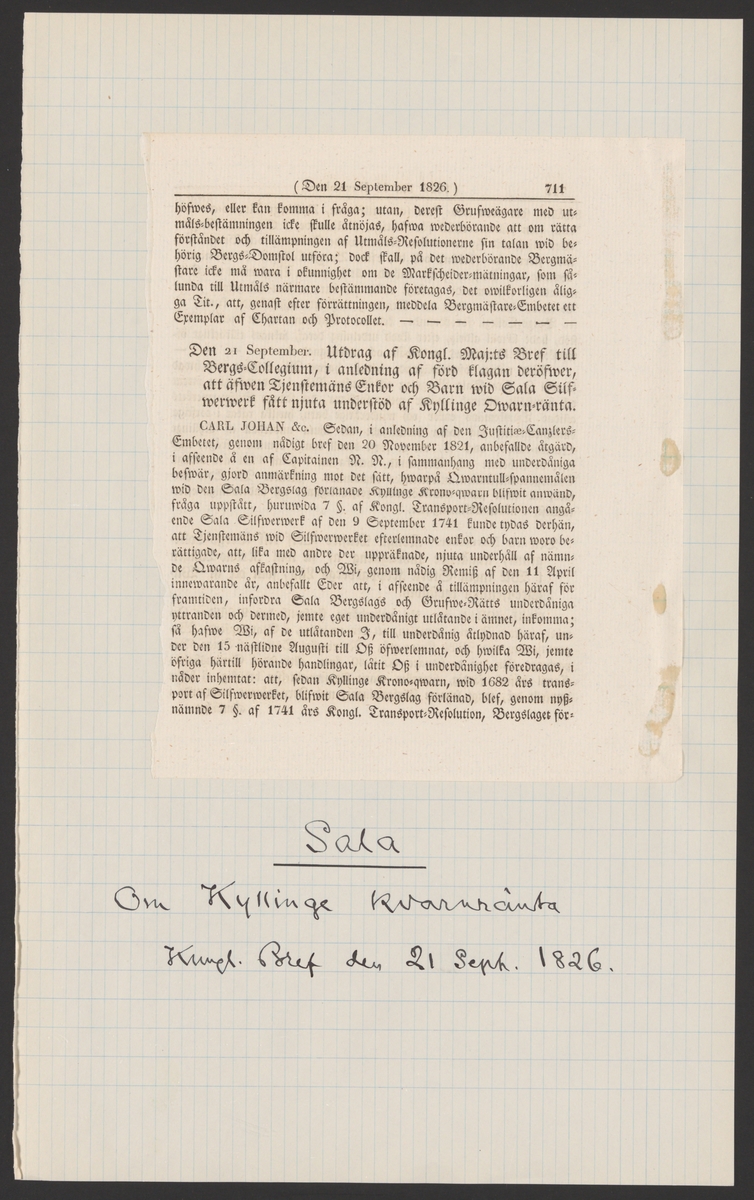 (Den 21 September 1826.) 711
höfwes, eller kan komma i fråga; utan, derest Grufweägare med ut-
måls-bestämningen icke skulle åtnöjas, hafwa wederbörande att om rätta
förståndet och tillämpningen af Utmåls-Resolutionerne sin talan wid be-
hörig Bergs-Domstol utföra; dock skall, på det wederbörande Bergmä-
stare icke må wara i okunnighet om de Markscheider-mätningar, som så-
lunda till Utmåls närmare bestämmande företagas, det owilkorligen ålig-
ga Tit., att, genast efter förrättningen, meddela Bergmästare-Embetet ett
Exemplar af Chartan och Protocollet. — — — — — — —
Den 21 September. Utdrag af Kongl. Maj:ts Bref till
Bergs-Collegium, i anledning af förd klagan deröfwer,
att äfwen Tjenstemäns Enkor och Barn wid Sala Silf-
werwerk fått njuta understöd af Kyllinge Qwarn-ränta.
CARL JOHAN &c. Sedan, i anledning af den Justitiæ-Canzlers-
Embetet, genom nådigt bref den 20 November 1821, anbefallde åtgärd,
i afseende å en af Capitainen N. N., i sammanhang med underdåniga
beswär, gjord anmärkning mot det sätt, hwarpå Qwarntull-spannemålen
wid den Sala Bergslag förlänade Kyllinge Krono-qwarn blifwit anwänd,
fråga uppstått, huruwida 7 §. af Kongl. Transport-Resolutionen angå-
ende Sala Silfwerwerk af den 9 September 1741 kunde tydas derhän,
att Tjenstemäns wid Silfwerwerket efterlemnade enkor och barn woro be-
rättigade, att, lika med andre der uppräknade, njuta underhåll af nämn-
de Qwarns afkastning, och Wi, genom nådig Remiß af den 11 April
innewarande år, anbefallt Eder att, i afseende å tillämpningen häraf för
framtiden, infordra Sala Bergslags och Grufwe-Rätts underdåniga
yttranden och dermed, jemte eget underdånigt utlåtande i ämnet, inkomma;
så hafwe Wi, af de utlåtanden I, till underdånig åtlydnad häraf, un-
der den 15 nästlidne Augusti till Oß öfwerlemnat, och hwilka Wi, jemte
öfriga härtill hörande handlingar, låtit Oß i underdånighet föredragas, i
nåder inhemtat: att, sedan Kyllinge Krono-qwarn, wid 1682 års trans-
port af Silfwerwerket, blifwit Sala Bergslag förlänad, blef, genom nyß-
nämnde 7 §. af 1741 års Kongl. Transport-Resolution, Bergslaget för-
Sala
Om Kyllinge kvarnränta
Kungl. Bref den 21 Sept. 1826.